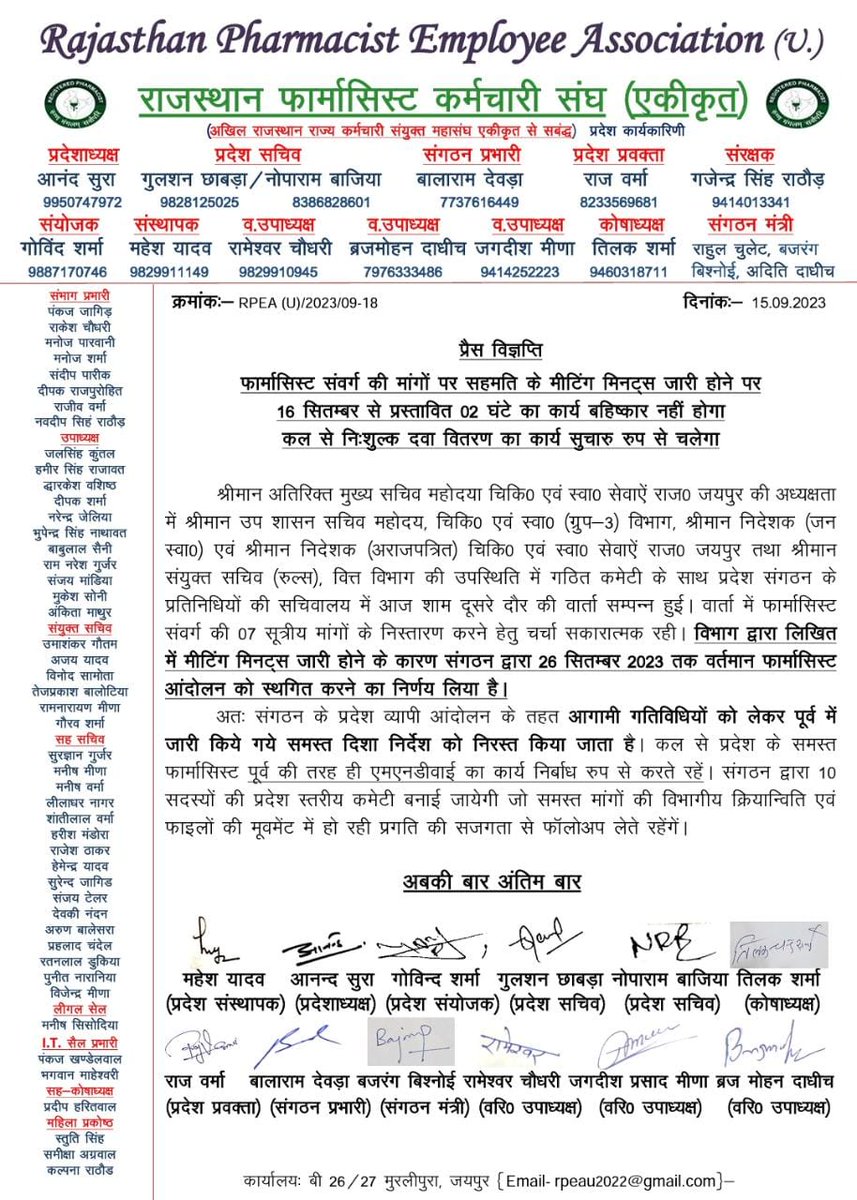 Rajasthan Pharmacist Employee Association (U.)
राजस्थान फार्मासिस्ट कर्मचारी संघ (एकीकृत)
(अखिल राजस्थान राज्य कर्मचारी संयुक्त महासंघ एकीकृत से सबंद्ध) प्रदेश कार्यकारिणी
प्रदेशाध्यक्ष प्रदेश सचिव संगठन प्रभारी प्रदेश प्रवक्ता संरक्षक
आनंद सुरा गुलशन छाबड़ा/नोपाराम बाजिया बालाराम देवड़ा राज वर्मा गजेन्द्र सिंह राठौड़
9950747972 9828125025 8386828601 7737616449 8233569681 9414013341
संयोजक संस्थापक व.उपाध्यक्ष व.उपाध्यक्ष व.उपाध्यक्ष कोषाध्यक्ष संगठन मंत्री
गोविंद शर्मा महेश यादव रामेश्वर चौधरी ब्रजमोहन दाधीच जगदीश मीणा तिलक शर्मा राहुल चुलेट, बजरंग
9887170746 9829911149 9829910945 7976333486 9414252223 9460318711 बिश्नोई, अदिति दाधीच
संभाग प्रभारी
पंकज जागिड़
राकेश चौधरी
मनोज पारवानी
मनोज शर्मा
संदीप पारीक
दीपक राजपुरोहित
राजीव वर्मा
नवदीप सिहं राठौड़
उपाध्यक्ष
जलसिंह कुंतल
हमीर सिंह राजावत
द्धारकेश वशिष्ठ
दीपक शर्मा
नरेन्द्र जेलिया
भुपेन्द्र सिंह नाथावत
बाबुलाल सैनी
राम नरेश गुर्जर
संजय मांडिया
मुकेश सोनी
अंकिता माथुर
संयुक्त सचिव
उमाशंकर गौतम
अजय यादव
विनोद सामोता
तेजप्रकाश बालोटिया
रामनारायण मीणा
गौरव शर्मा
सह सचिव
सुरज्ञान गुर्जर
मनीष मीणा
मनीष वर्मा
लीलाधर नागर
शांतीलाल वर्मा
हरीश मंडोरा
राजेश ठाकर
हेमेन्द्र यादव
सुरेन्द जागिड
संजय टेलर
देवकी नंदन
अरुण बालेसरा
प्रहलाद चंदेल
रतनलाल डुकिया
पुनीत नारानिया
विजेन्द्र मीणा
लीगल सेल
मनीष सिसोदिया
I.T. सैल प्रभारी
पंकज खण्डेलवाल
भगवान माहेश्वरी
सह–कोषाध्यक्ष
प्रदीप हरितवाल
महिला प्रकोष्ठ
स्तुति सिंह
समीक्षा अग्रवाल
कल्पना राठौड
क्रमांकः– RPEA (U)/2023/09-18 दिनांकः– 15.09.2023
प्रैस विज्ञप्ति
फार्मासिस्ट संवर्ग की मांगों पर सहमति के मीटिंग मिनट्स जारी होने पर
16 सितम्बर से प्रस्तावित 02 घंटे का कार्य बहिष्कार नहीं होगा
कल से निःशुल्क दवा वितरण का कार्य सुचारु रुप से चलेगा
श्रीमान अतिरिक्त मुख्य सचिव महोदया चिकि0 एवं स्वा0 सेवाऐं राज0 जयपुर की अध्यक्षता
में श्रीमान उप शासन सचिव महोदय, चिकि0 एवं स्वा0 (ग्रुप–3) विभाग, श्रीमान निदेशक (जन
स्वा0) एवं श्रीमान निदेशक (अराजपत्रित) चिकि0 एवं स्वा0 सेवाऐं राज0 जयपुर तथा श्रीमान
संयुक्त सचिव (रुल्स), वित्त विभाग की उपस्थिति में गठित कमेटी के साथ प्रदेश संगठन के
प्रतिनिधियों की सचिवालय में आज शाम दूसरे दौर की वार्ता सम्पन्न हुई। वार्ता में फार्मासिस्ट
संवर्ग की 07 सूत्रीय मांगों के निस्तारण करने हेतु चर्चा सकारात्मक रही। विभाग द्वारा लिखित
में मीटिंग मिनट्स जारी होने के कारण संगठन द्वारा 26 सितम्बर 2023 तक वर्तमान फार्मासिस्ट
आंदोलन को स्थगित करने का निर्णय लिया है।
अतः संगठन के प्रदेश व्यापी आंदोलन के तहत आगामी गतिविधियों को लेकर पूर्व में
जारी किये गये समस्त दिशा निर्देश को निरस्त किया जाता है। कल से प्रदेश के समस्त
फार्मासिस्ट पूर्व की तरह ही एमएनडीवाई का कार्य निर्बाध रुप से करते रहें। संगठन द्वारा 10
सदस्यों की प्रदेश स्तरीय कमेटी बनाई जायेगी जो समस्त मांगों की विभागीय क्रियान्विति एवं
फाइलों की मूवमेंट में हो रही प्रगति की सजगता से फॉलोअप लेते रहेंगें।
अबकी बार अंतिम बार
महेश यादव आनन्द सुरा गोविन्द शर्मा गुलशन छाबड़ा नोपाराम बाजिया तिलक शर्मा
(प्रदेश संस्थापक) (प्रदेशाध्यक्ष) (प्रदेश संयोजक) (प्रदेश सचिव) (प्रदेश सचिव) (कोषाध्यक्ष)
रामेश्वर
राज वर्मा बालाराम देवड़ा बजरंग बिश्नोई रामेश्वर चौधरी जगदीश प्रसाद मीणा ब्रज मोहन दाधीच
(प्रदेश प्रवक्ता) (संगठन प्रभारी) (संगठन मंत्री) (वरि0 उपाध्यक्ष) (वरि0 उपाध्यक्ष) (वरि0 उपाध्यक्ष)
कार्यालयः बी 26/27 मुरलीपुरा, जयपुर {Email- rpeau2022@gmail.com}–